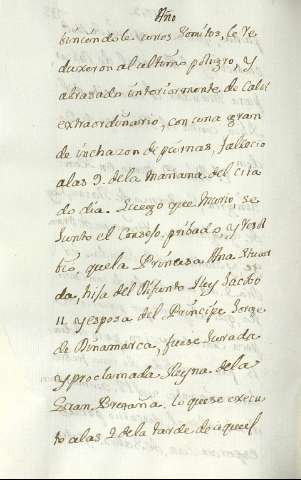 Año
tiriendole unos Vomitos, le re
duxeron al ultimo peligro, y
abrasado interiormente de Calor
extraordinario, con una gran
de inchazon de piernas, fallecio
a las 9. de la Mañana del cita
do dia. Luego que Murio, se
Junto el Consejo, pribado, y resol
bio, que la Princesa Ana Stuar
da, hija del Difunto Rey Jacobo
II. y esposa del Principe Jorge
de Dinamarca, fuese Jurada
y proclamada Reyna de la
Gran Bretaña. lo que se execu
tó a las 2 de la tarde de aquel